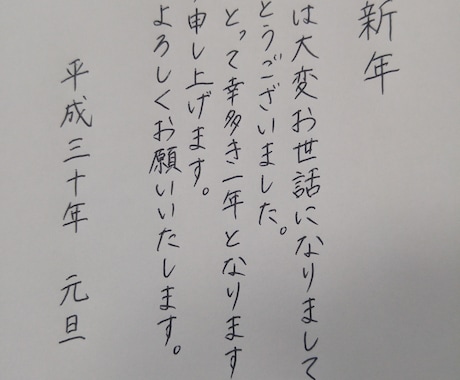 新年
は大変お世話になりまして
とうございました。
とって幸多き一年となります
申し上げます。
よろしくお願いいたします。
平成三十年 元旦